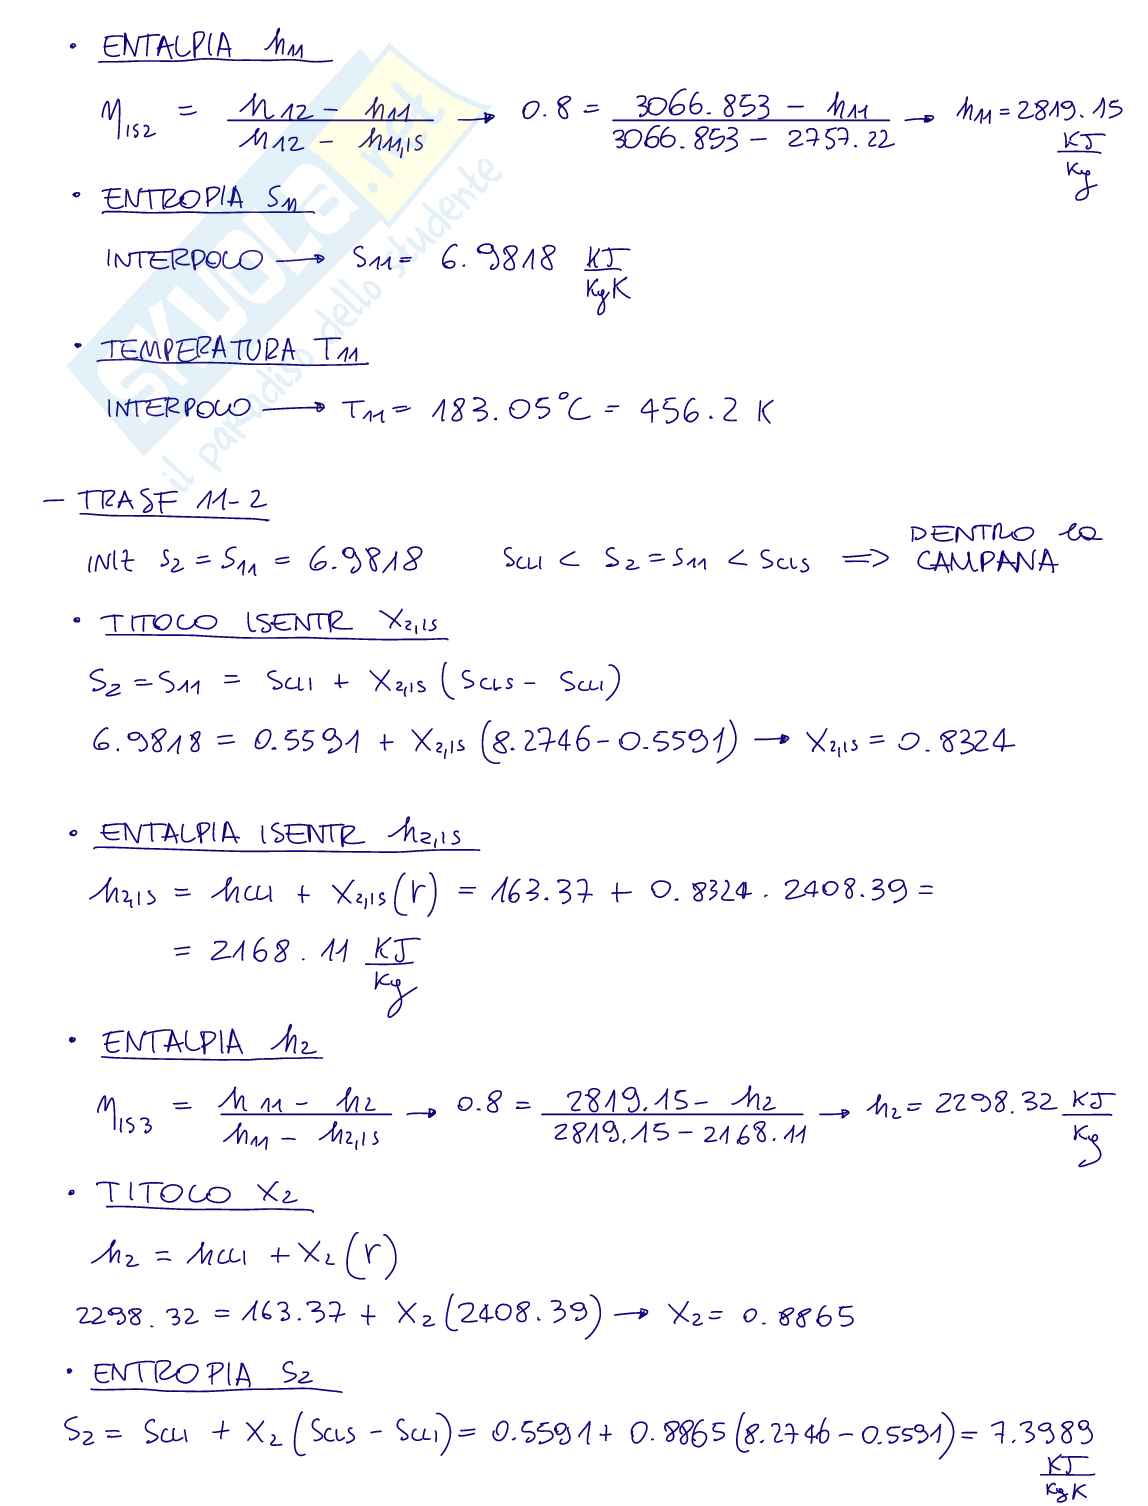 • ENTALPIA h11
ηis2 = (h12 - h11) / (h12 - h11,is) → 0.8 = (3066.853 - h11) / (3066.853 - 2757.22) → h11 = 2819.15 KJ/Kg
• ENTROPIA S11
INTERPOLO → S11 = 6.9818 KJ/KgK
• TEMPERATURA T11
INTERPOLO → T11 = 183.05°C = 456.2 K
- TRASF 11-2
INIZ S2 = S11 = 6.9818 SCLI < S2 = S11 < SCLS ⇒ DENTRO LA CAMPANA
• TITOLO ISENTR X2,IS
S2 = S11 = SCLI + X2,IS (SCLS - SCLI)
6.9818 = 0.5591 + X2,IS (8.2746 - 0.5591) → X2,IS = 0.8324
• ENTALPIA ISENTR h2,IS
h2,IS = hCLI + X2,IS (r) = 163.37 + 0.8324 . 2408.39 =
= 2168.11 KJ/Kg
• ENTALPIA h2
ηis3 = (h11 - h2) / (h11 - h2,IS) → 0.8 = (2819.15 - h2) / (2819.15 - 2168.11) → h2 = 2298.32 KJ/Kg
• TITOLO X2
h2 = hCLI + X2 (r)
2298.32 = 163.37 + X2 (2408.39) → X2 = 0.8865
• ENTROPIA S2
S2 = SCLI + X2 (SCLS - SCLI) = 0.5591 + 0.8865 (8.2746 - 0.5591) = 7.3989 KJ/KgK
SKUOLA.net
il paradiso dello studente